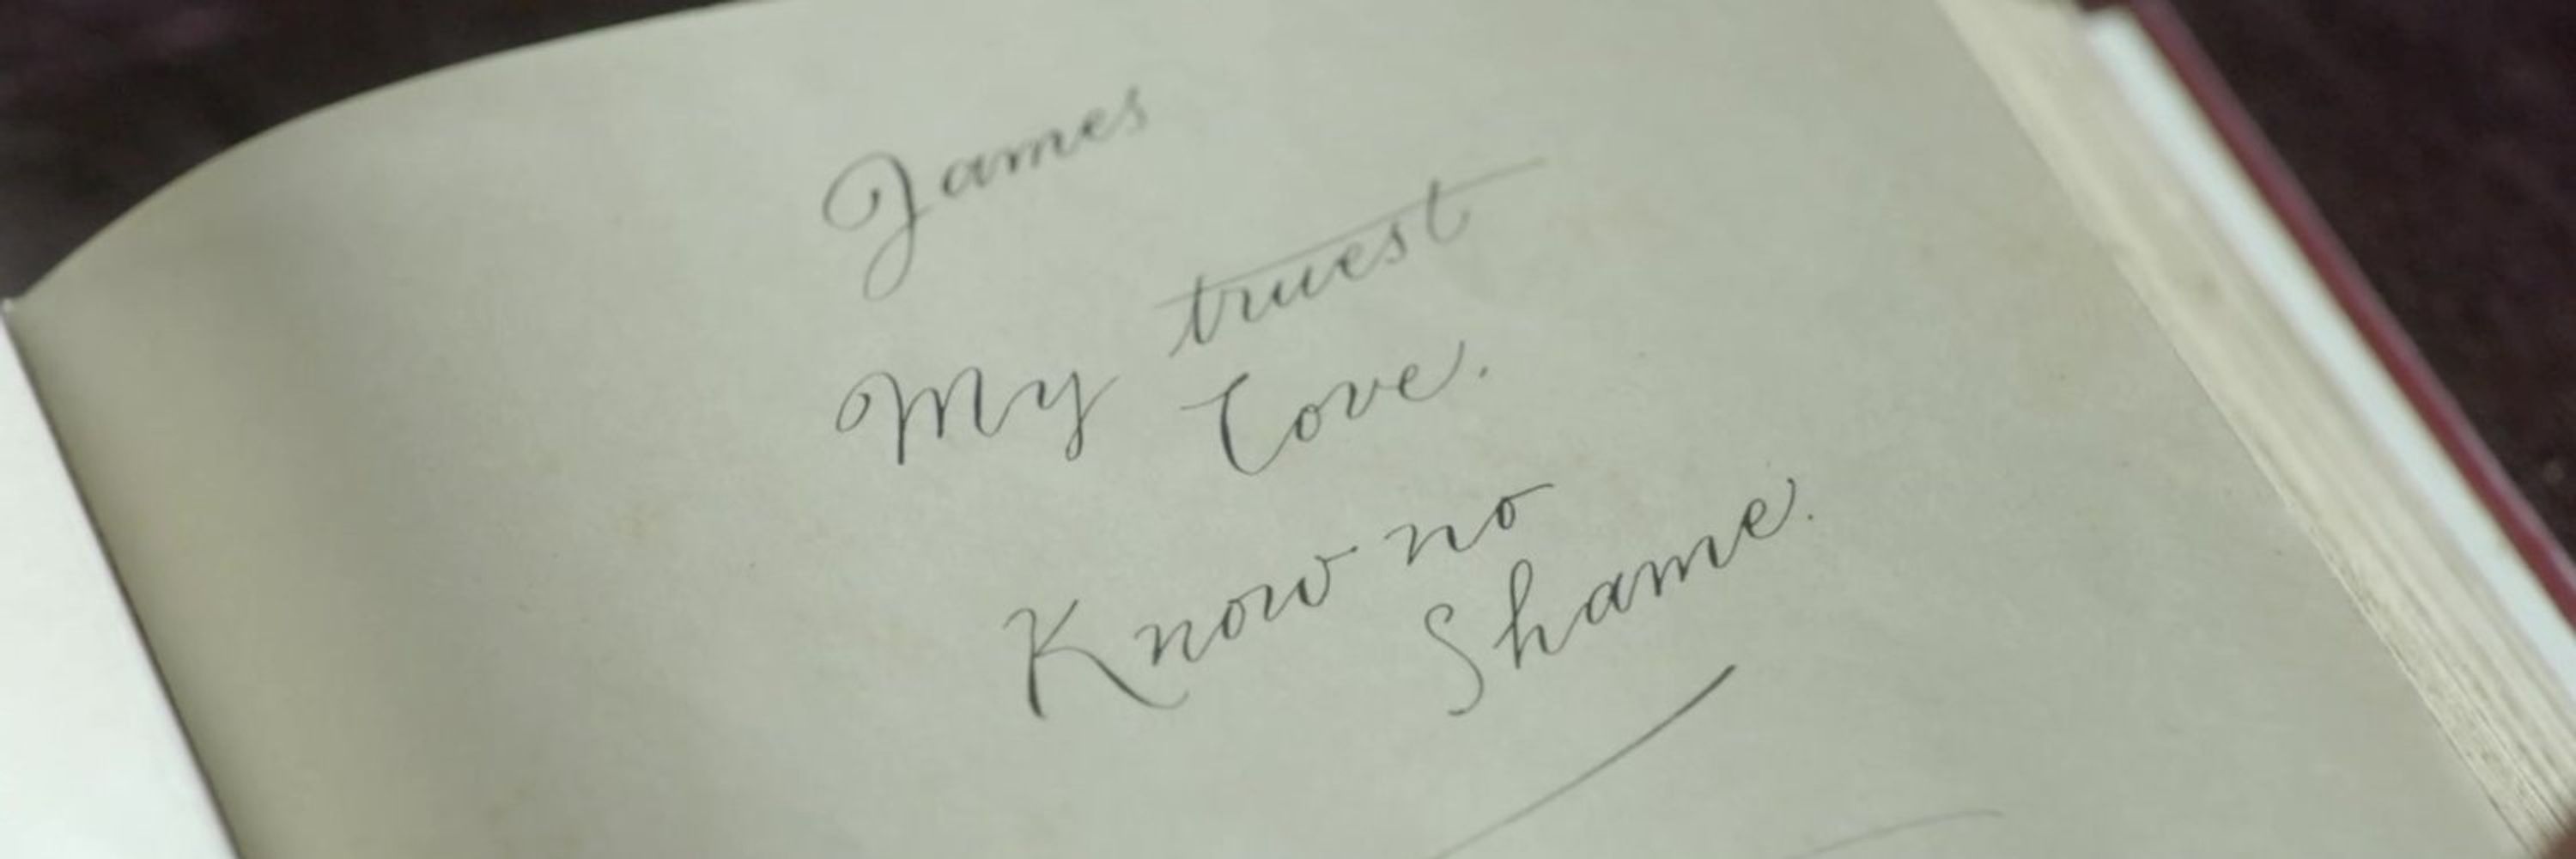 James
My truest
Love.
Know no
Shame.